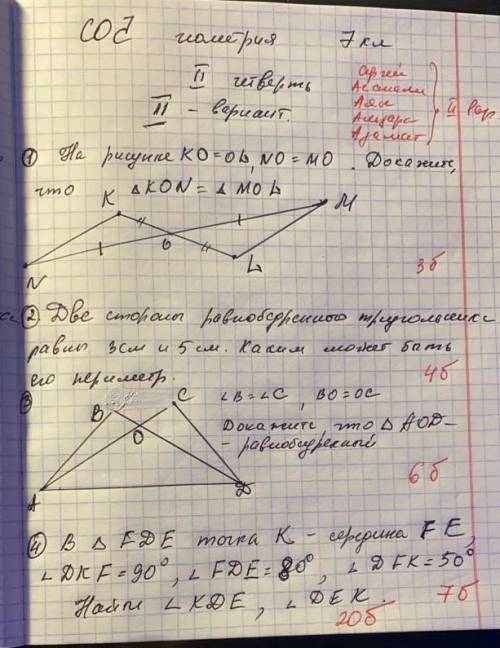 СОЧ геометрия 7 кл
II четверть
II - вариант.
Сергей
Аяс
Амира
Азамат
II вар
① На рисунке KO=OL, NO=MO. Докажите,
что △KON=△MOL
K
M
O
L
N
3б
② Две стороны равнобедренного треугольника
равны 3см и 5см. Каким может быть
его периметр.
4б
③
B
C
O
A
D
∠B=∠C, BO=OC
Докажите, что △AOD-
- равнобедренный
6б
④ В △FDE точка K - середина FE,
∠DKF=90°, ∠FDE=80°, ∠DFK=50°
Найти ∠KDE, ∠DEK.
7б
20б